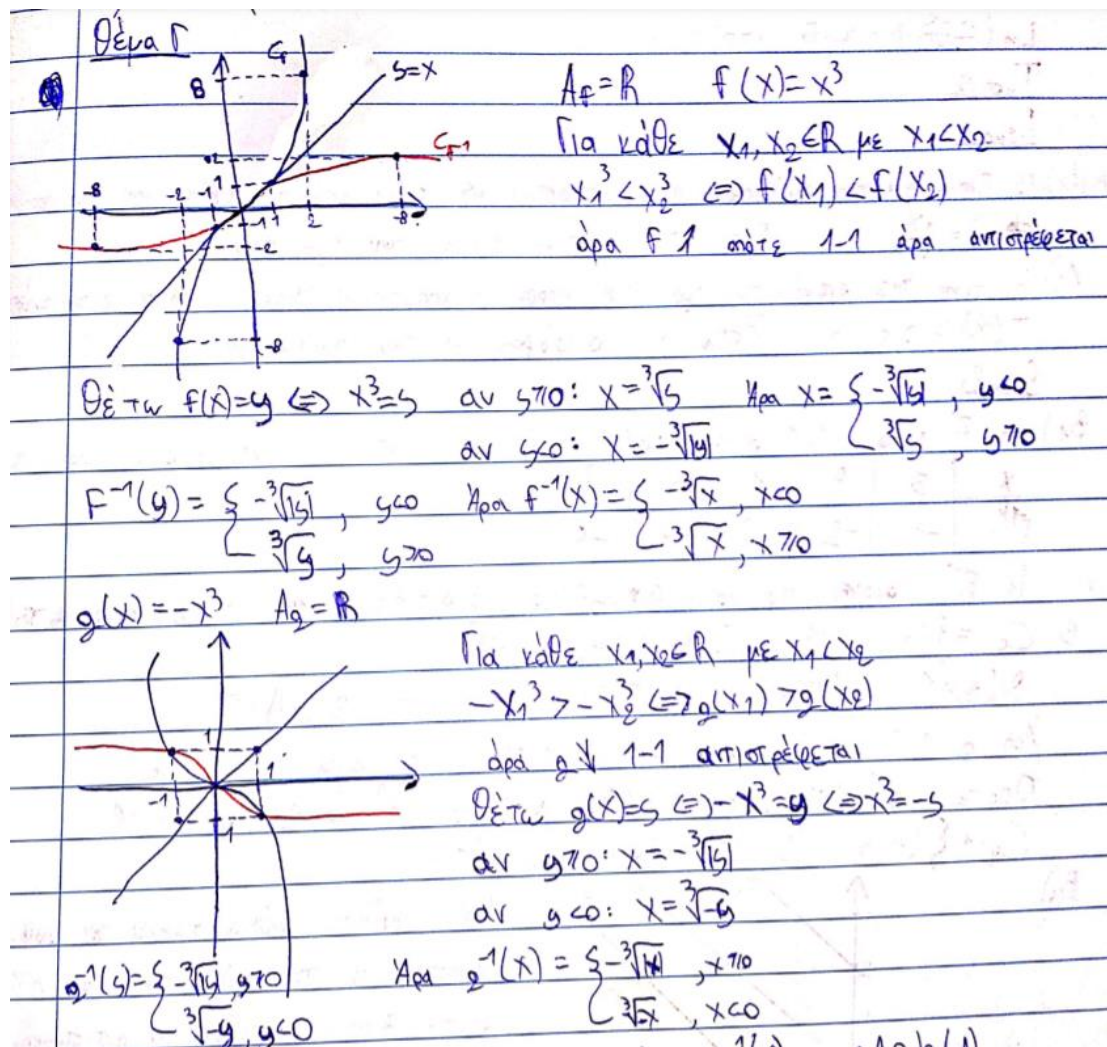 Θέμα Γ
8 Cf y=x
Cf-1
2
1
-8 -2 -1 1 2 -8
-1
-2
-8
Af=ℝ f(x)=x³
Για κάθε x₁,x₂∈ℝ με x₁<x₂
x₁³<x₂³ ⇔ f(x₁)<f(x₂)
άρα f ↑ οπότε 1-1 άρα αντιστρέφεται
Θέτω f(x)=y ⇔ x³=y αν y≥0: x=³√y Άρα x= { -³√|y| , y<0
³√y , y≥0
αν y<0: x=-³√|y|
F⁻¹(y) = { -³√|y| , y<0 Άρα f⁻¹(x)= { -³√x , x<0
³√y , y≥0 ³√x , x≥0
g(x)=-x³ Ag=ℝ
1
-1 1
1
Για κάθε x₁,x₂∈ℝ με x₁<x₂
-x₁³>-x₂³ ⇔ g(x₁)>g(x₂)
άρα g ↓ 1-1 αντιστρέφεται
Θέτω g(x)=y ⇔ -x³=y ⇔ x³=-y
αν y≥0: x=-³√|y|
αν y<0: x=³√-y
g⁻¹(y)= { -³√|y| , y≥0 Άρα g⁻¹(x) = { -³√|x| , x≥0
³√-y , y<0 ³√-x , x<0